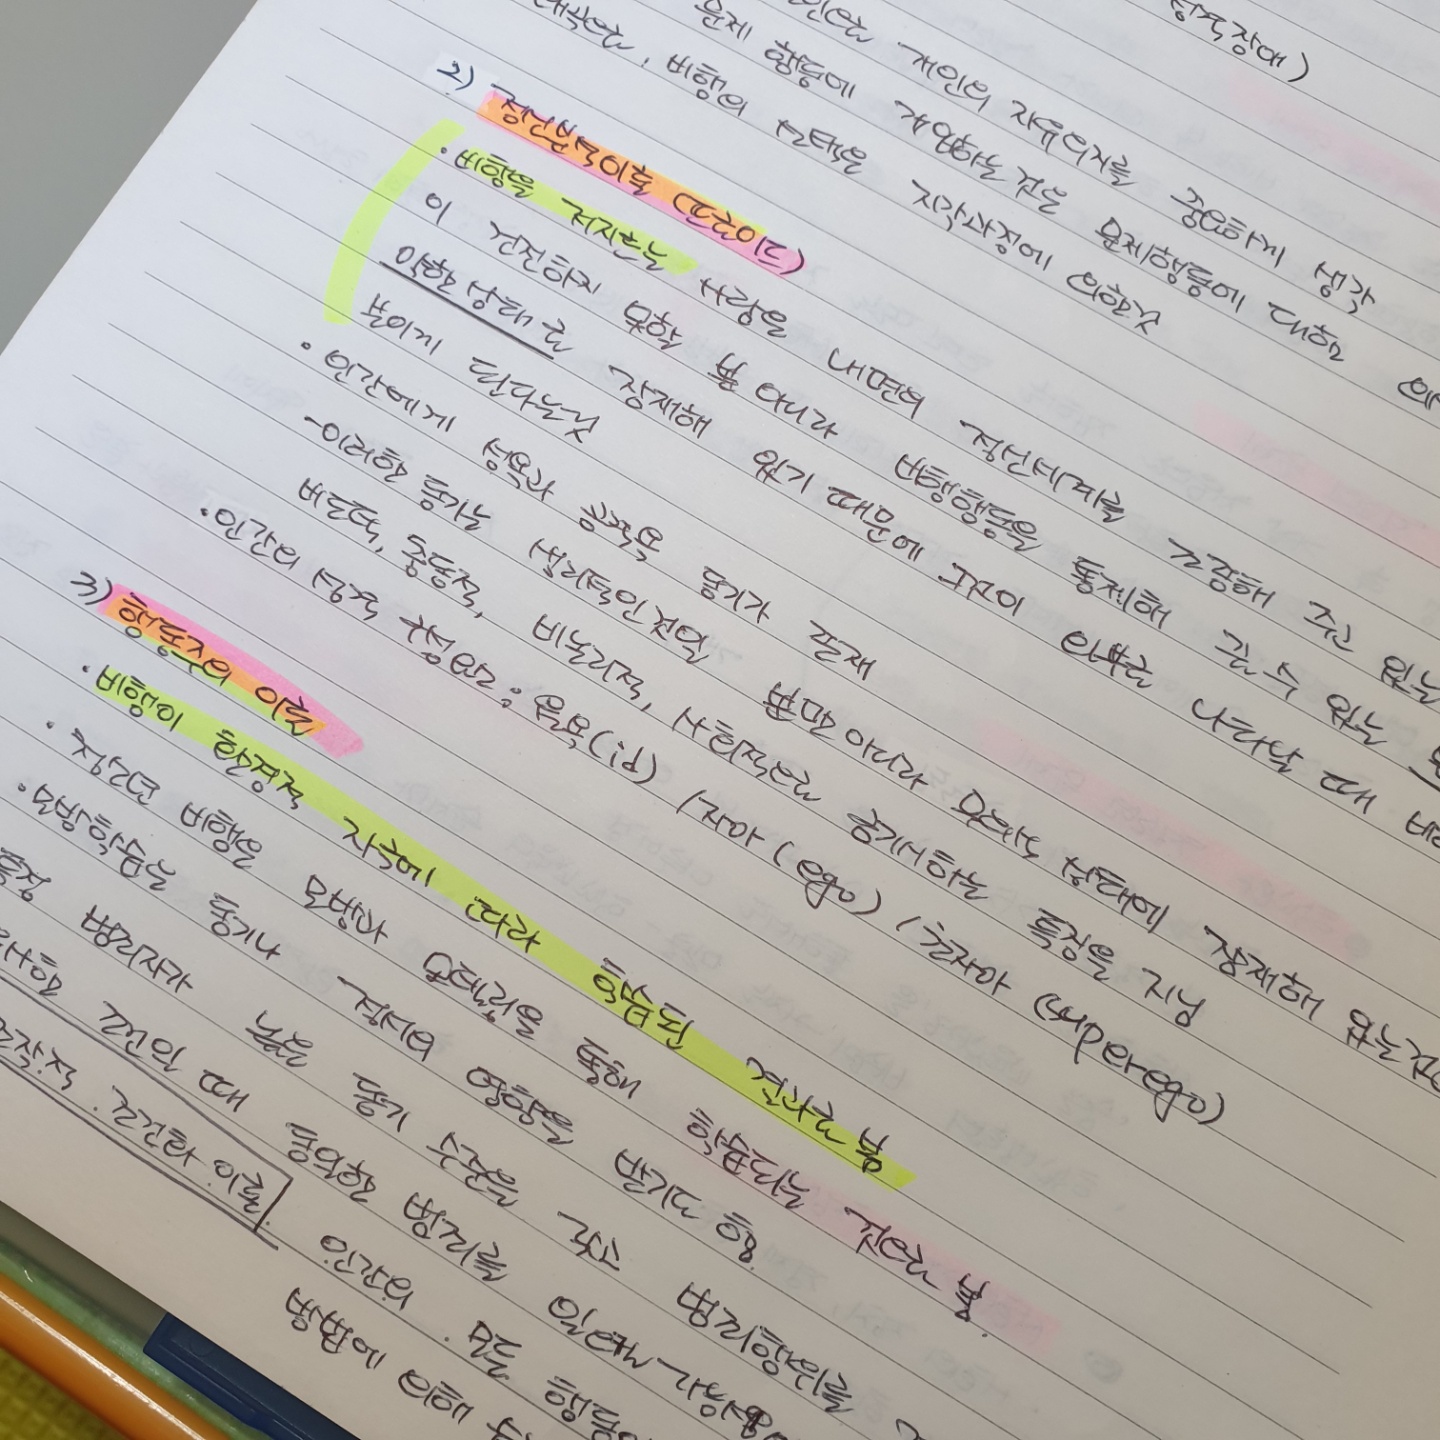 성장애)
인은 개인의 자유의지를 중요하게 생각
문제 행동에 개입하는 것은 문제행동에 대한
, 비행의 선택은 지각과정에 의한것
2) 정신분석이론 (프로이드)
· 비행을 저지르는 사람은 내면의 정신세계를 조절해 주고 있는
이 건전하지 못할 뿐 아니라 비행행동을 통제해 줄 수 있는
약한 상태로 잠재해 있기 때문에 그것이 외부로 나타날 때
보이게 된다는것
· 인간에게 성욕과 공격욕 동기가 존재
- 이러한 동기는 생리적인 것일 뿐만 아니라 무의식 상태에 잠재해 있는것
배타적, 충동적, 비논리적, 사회적으로 용기사하는 특징을 지님
· 인간의 성격 구성요소 : 욕욕(id) / 자아(ego) / 초자아 (superego)
3) 행동주의 이론
· 비행이 환경적 자극에 따라 학습된 결과로 봄
· 청소년 비행은 모방과 모델링을 통해 학습되는 것으로 봄.
· 모방학습은 동기나 정서의 영향을 받기도 함.
특정 범죄자가 높은 동기 수준을 갖고 범죄행위를
조건의 때 동의한 범죄를 일으킬 가능성이
조작적 조건화 이론 인간의 모든 행동
방법에 의해